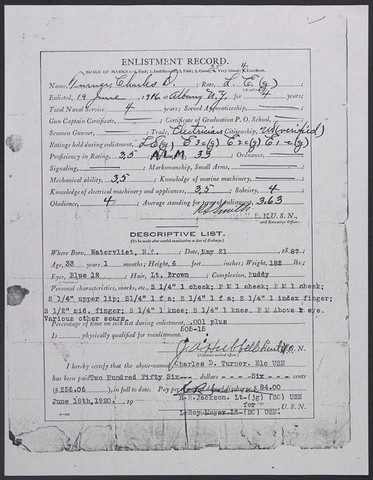 ENLISTMENT RECORD.
SCALE OF MARKS: 0, Bad; 1, Indifferent; 2, Fair; 3, Good; 3.5 Very Good; 4, Excellent.
Name, Turner, Charles D. Rate, L. E. (g)
Enlisted, 19 June, 1916, at Albany N.Y. for 4 years;
Total Naval Service 4 years; Served Apprenticeship,
Gun Captain Certificate, Certificate of Graduation P. O. School,
Seaman Gunner, Trade, Electrician Citizenship, US (verified)
Ratings held during enlistment, LE(g) E3c(g) E2c(g) E1c(g)
Proficiency in Rating 3.5 Ordnance,
Signaling, Marksmanship, Small Arms,
Mechanical ability, 3.5 Knowledge of marine machinery,
Knowledge of electrical machinery and appliances, 3.5 Sobriety, 4
Obedience, 4 Average standing for 3.63
R. Smith U. S. N.,
and Executive Officer.
DESCRIPTIVE LIST.
(To be made after careful examination at day of discharge.)
Where Born, Watervliet, N.Y. ; Date, May 21 18 87
Age, 33 years 1 month; Height, 6 feet inches; Weight, 182 lbs.
Eyes, Blue 12 ; Hair, Lt. Brown ; Complexion, ruddy
Personal characteristics, marks, etc., S 1/4" l cheek; P M l cheek; P M l cheek;
S 1/4" upper lip; S 1/4" l f a; S 1/4" l f a; S 1/4" l index finger;
S 1/2" mid. finger; S 1/4" l knee; S 1/4" l knee, P M above r eye.
Various other scars.
Percentage of time on sick list during enlistment, .001 plus
Is physically qualified for reenlistment.
J. A. Hubbell U.S.N.
I hereby certify that the above-named Charles D. Turner. Elc USN
has been paid Two Hundred Fifty Six dollars Six cents
($ 256.06 ), in full to date. $4.00
June 18th, 1920. , 19 R.H. Jackson. Lt-(jg) (SC) USN
for U. S. N.
LeRoy Moyer. Lt-(SC) USN